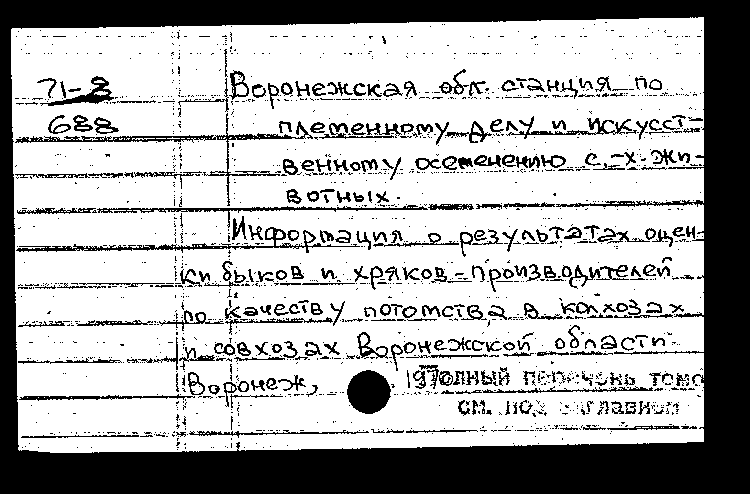 71-8
688
Воронежская обл. станция по
племенному делу и искусст-
венному осеменению с.-х. жи-
вотных.
Информация о результатах оцен-
ки быков и хряков-производителей
по качеству потомства в колхозах
и совхозах Воронежской области
Воронеж, 197
олный перечень томо
см. под заглавием